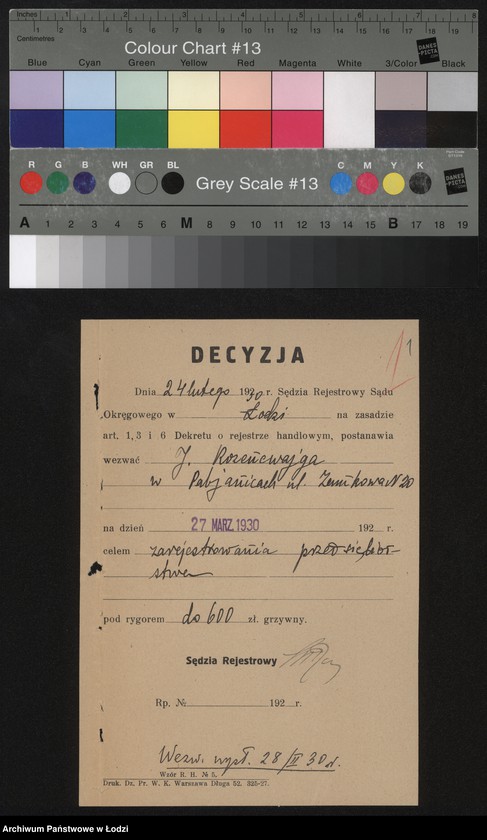 Inches 1 2 3 4 5 6 7 8
Centimetres 1 2 3 4 5 6 7 8 9 10 11 12 13 14 15 16 17 18 19
Colour Chart #13
DANES-PICTA
Blue Cyan Green Yellow Red Magenta White 3/Color Black
R G B WH GR BL C M Y K
Grey Scale #13
DANES-PICTA
A 1 2 3 4 5 6 M 8 9 10 11 12 13 14 15 B 17 18 19
1
DECYZJA
Dnia 24 lutego 1930 r. Sędzia Rejestrowy Sądu
Okręgowego w Łodzi na zasadzie
art. 1, 3 i 6 Dekretu o rejestrze handlowym, postanawia
wezwać J. Rozencwajga
w Pabjanicach ul. Zamkowa N 20
na dzień 27 MARZ. 1930 192 r.
celem zarejestrowania przedsiębior-
stwa
pod rygorem do 600 zł. grzywny.
Sędzia Rejestrowy
Rp. № 192 r.
Wezw. wysł. 28/II 30 r.
Wzór R. H. № 5.
Druk. Dz. Pr. W. K. Warszawa Długa 52. 325-27.
Archiwum Państwowe w Łodzi